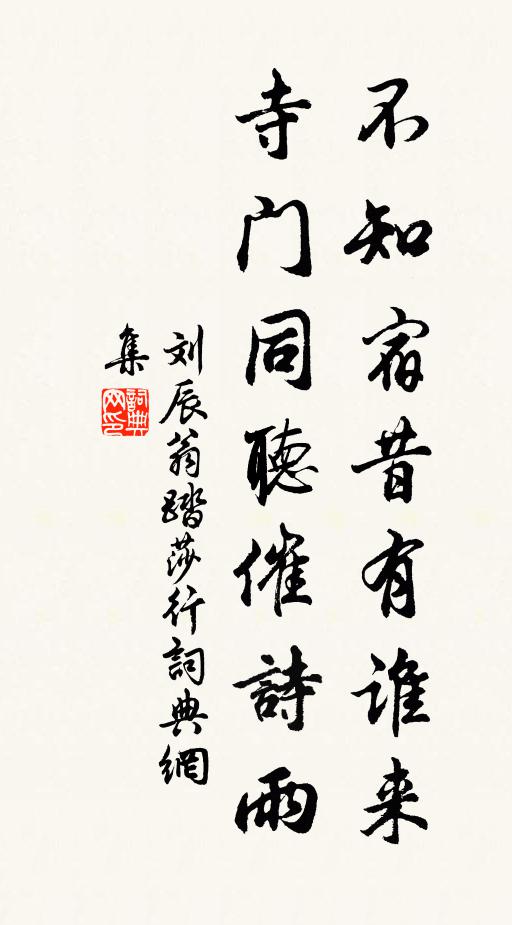 不知宿昔有谁来
寺门同聴催詩雨
刘辰翁踏莎行詞典網
集
詞典网印